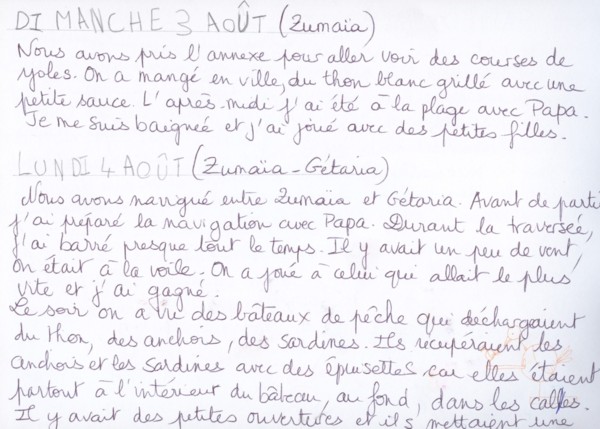 DIMANCHE 3 AOÛT (Zumaïa)
Nous avons pris l'annexe pour aller voir des courses de
yoles. On a mangé en ville, du thon blanc grillé avec une
petite sauce. L'après-midi j'ai été à la plage avec Papa.
Je me suis baignée et j'ai joué avec des petites filles.
LUNDI 4 AOÛT (Zumaïa-Gétaria)
Nous avons navigué entre Zumaïa et Gétaria. Avant de parti
j'ai préparé la navigation avec Papa. Durant la traversée,
j'ai barré presque tout le temps. Il y avait un peu de vent,
on était à la voile. On a joué à celui qui allait le plus
vite et j'ai gagné.
Le soir on a vu des bâteaux de pêche qui déchargeaient
du thon, des anchois, des sardines. Ils récupéraient les
anchois et les sardines avec des épuisettes car elles étaient
partout à l'intérieur du bâteau, au fond, dans les calles.
Il y avait des petites ouvertures et ils mettaient une